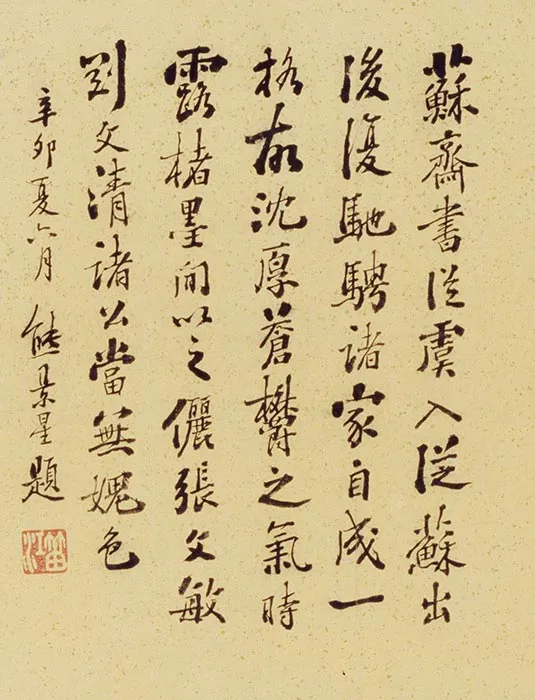 蘇齋書從虞入從蘇出
後復馳騁諸家自成一
格故沈厚蒼鬱之氣時
露楮墨間以之儷張文敏
劉文清諸公當無媿色
辛卯夏六月熊景星題
笛江